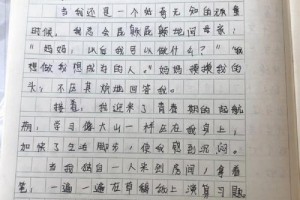 当我还是一个幼有无知的顽童
时候，我总会屁颠屁颠地问我家：
"妈妈，以后我可以做什么？""做
想做我想成为的人。"妈妈摸摸我的
头，不厌其烦地回答我。
接着，我迎来了青春期的起航
，学习像大山一样压在我身上，
加快了生活脚步，使我感到沉闷。
当我独自一人来到房间，拿着
笔，一遍一遍在草稿纸上演算习题